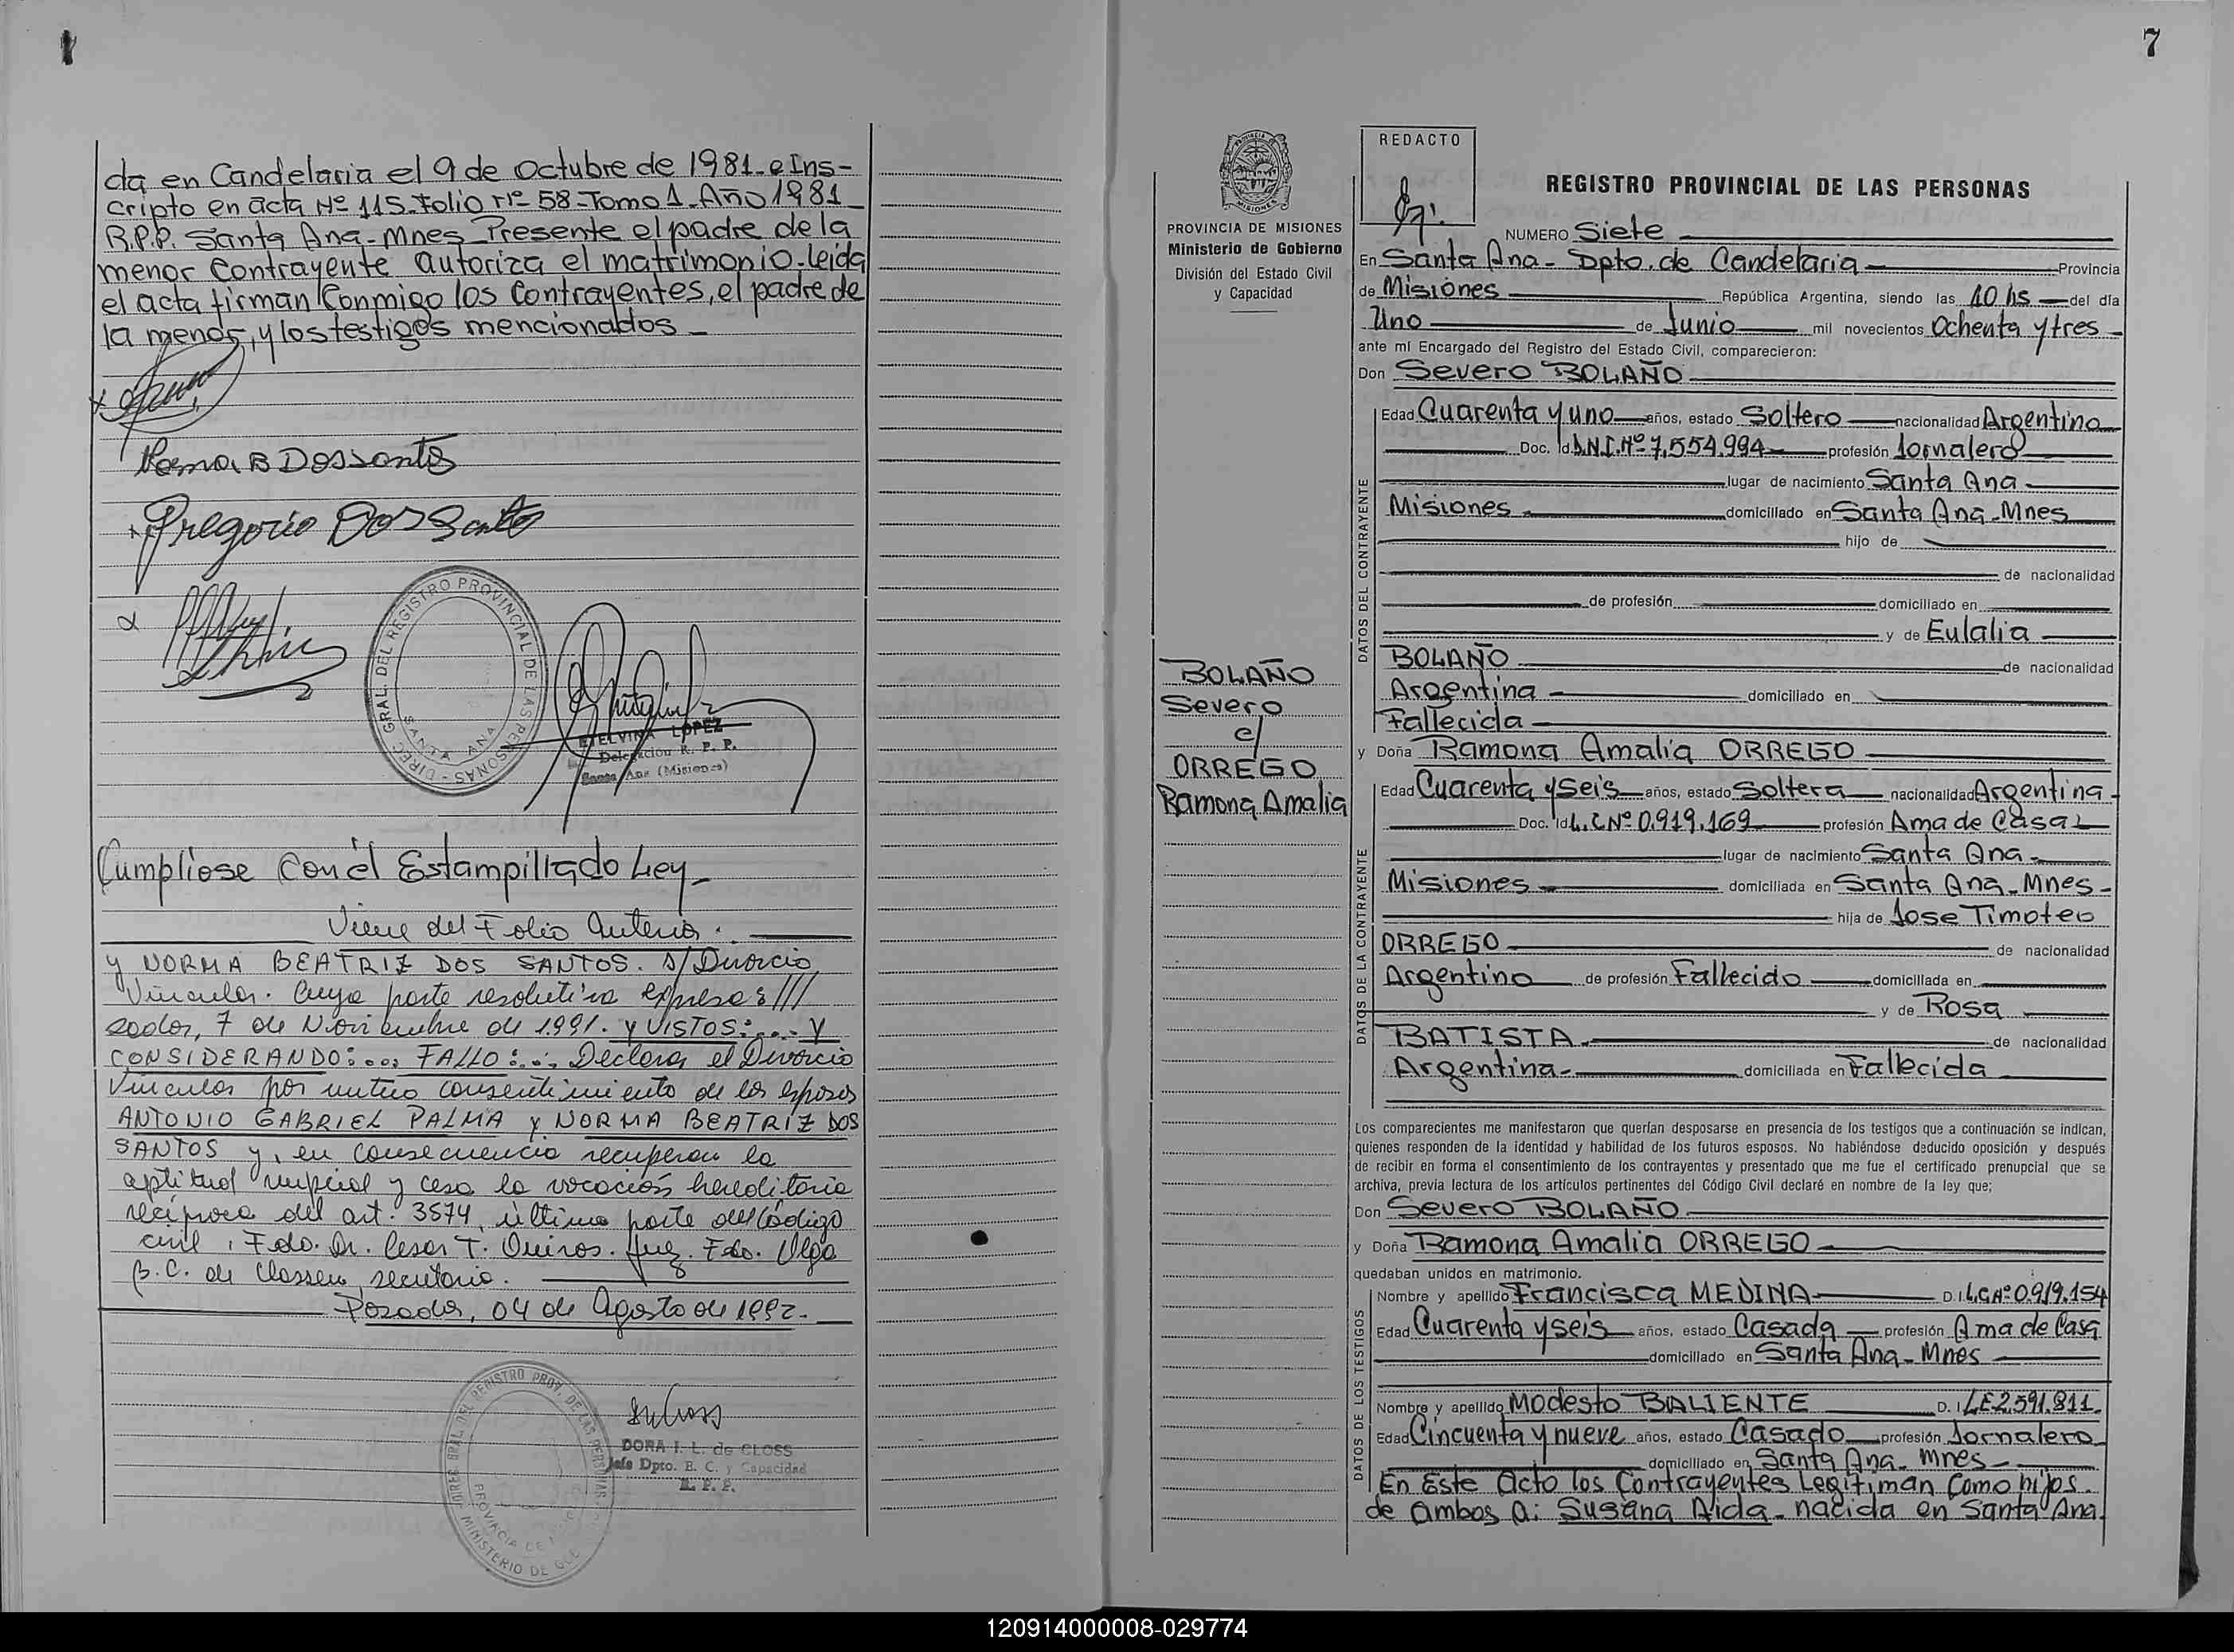 7
da en Candelaria el 9 de Octubre de 1981 - e Ins-
cripto en acta Nº 115 - Folio nº 58 - Tomo 1 - Año 1981
R.P.P. Santa Ana - Mnes - Presente el padre de la
menor contrayente autoriza el matrimonio - leída
el acta firman Conmigo los Contrayentes, el padre de
la menor, y los testigos mencionados -
Norma B Dossantos
Gregorio Dos Santos
DIREC. GRAL. DEL REGISTRO PROVINCIAL DE LAS PERSONAS -
SANTA ANA
ETELVINA LOPEZ
Delegación R. P. P.
Santa Ana (Misiones)
Cumpliose Con el Estampillado Ley -
Viene del Folio Anterior.
y NORMA BEATRIZ DOS SANTOS. S/ Divorcio
Vincular. Cuya parte resolutiva expresa: ///
sadas, 7 de Noviembre de 1991. y VISTOS: .... Y
CONSIDERANDO: ... FALLO: ... Declarar el Divorcio
Vincular por mutuo consentimiento de los esposos
ANTONIO GABRIEL PALMA y NORMA BEATRIZ DOS
SANTOS y, en consecuencia recuperan la
aptitud nupcial y cesa la vocación hereditaria
recíproca del art. 3574, última parte del Código
civil. Fdo. Dr. Cesar T. Quiros. Juez. Fdo. Olga
B. C. de Classen, secretaria.
Posadas, 04 de Agosto de 1992.
DORA I. L. de CLOSS
Jefe Dpto. E. C. y Capacidad
R. P. P.
PROVINCIA DE MISIONES
Ministerio de Gobierno
División del Estado Civil
y Capacidad
BOLAÑO
Severo
c/
ORREGO
Ramona Amalia
REDACTO
REGISTRO PROVINCIAL DE LAS PERSONAS
NUMERO Siete
En Santa Ana - Dpto. de Candelaria Provincia
de Misiones República Argentina, siendo las 10 hs del día
Uno de Junio mil novecientos Ochenta y tres
ante mí Encargado del Registro del Estado Civil, comparecieron:
Don Severo BOLAÑO
DATOS DEL CONTRAYENTE
Edad Cuarenta y uno años, estado Soltero nacionalidad Argentino
Doc. Id. D.N.I. Nº 7.554.994 profesión Jornalero
lugar de nacimiento Santa Ana
Misiones domiciliado en Santa Ana - Mnes
hijo de
de nacionalidad
de profesión domiciliado en
y de Eulalia
BOLAÑO de nacionalidad
Argentina domiciliado en
Fallecida
y Doña Ramona Amalia ORREGO
DATOS DE LA CONTRAYENTE
Edad Cuarenta y Seis años, estado Soltera nacionalidad Argentina
Doc. Id L.C Nº 0.919.169 profesión Ama de Casa
lugar de nacimiento Santa Ana
Misiones domiciliada en Santa Ana - Mnes -
hija de Jose Timoteo
ORREGO de nacionalidad
Argentino de profesión Fallecido domiciliada en
y de Rosa
BATISTA de nacionalidad
Argentina domiciliada en Fallecida
Los comparecientes me manifestaron que querían desposarse en presencia de los testigos que a continuación se indican,
quienes responden de la identidad y habilidad de los futuros esposos. No habiéndose deducido oposición y después
de recibir en forma el consentimiento de los contrayentes y presentado que me fue el certificado prenupcial que se
archiva, previa lectura de los artículos pertinentes del Código Civil declaré en nombre de la ley que;
Don Severo BOLAÑO
y Doña Ramona Amalia ORREGO
quedaban unidos en matrimonio.
DATOS DE LOS TESTIGOS
Nombre y apellido Francisca MEDINA D. I L.C Nº 0.919.154
Edad Cuarenta y seis años, estado Casada profesión Ama de Casa
domiciliado en Santa Ana - Mnes
Nombre y apellido Modesto BALIENTE D. I L.E 2.591.811
Edad Cincuenta y nueve años, estado Casado profesión Jornalero
domiciliado en Santa Ana - Mnes
En Este Acto los Contrayentes Legitiman Como hijos
de ambos a: Susana Aida - nacida en Santa Ana
120914000008-029774